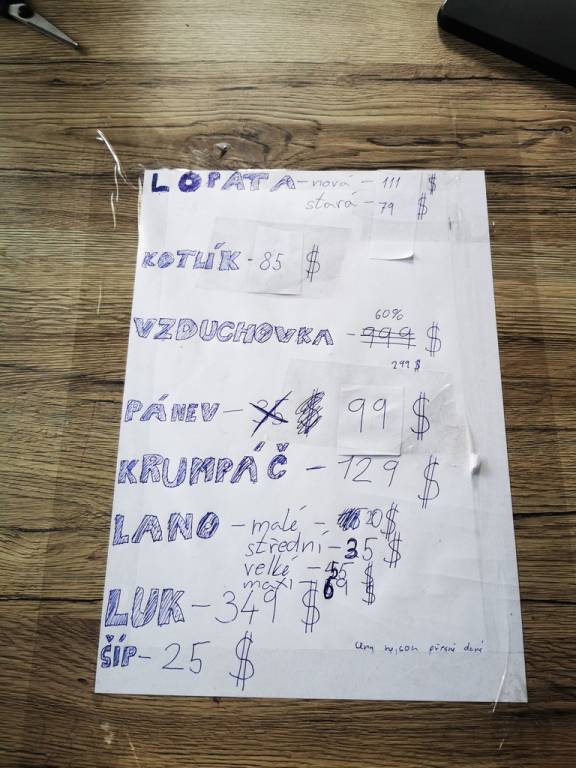 LOPATA - nová - 111 $
stará - 79 $
KOTLÍK - 85 $
60%
VZDUCHOVKA - 999 $
299 $
PÁNEV - 35 $ 99 $
KRUMPÁČ - 129 $
LANO - malé - 20 $
střední - 35 $
velké - 45 $
maxi - 69 $
LUK - 349 $
ŠÍP - 25 $
Ceny nejsou přesně dané